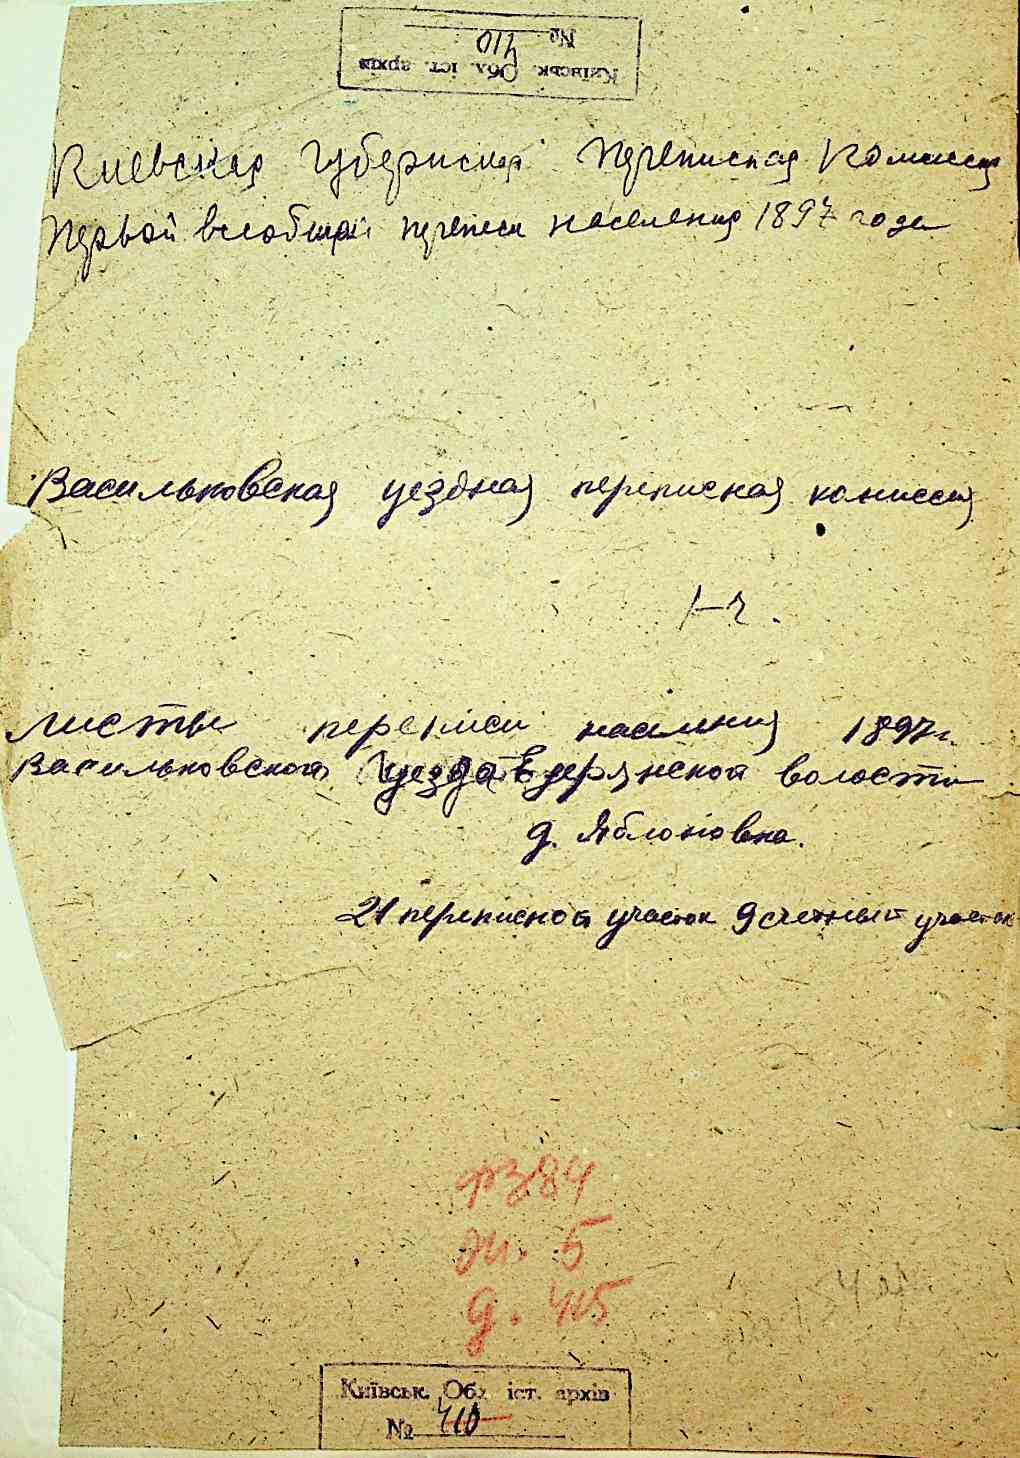 Київськ. Обл. іст. архів
№ 410
Киевская губернская переписная комиссия
Первой всеобщей переписи населения 1897 года
Васильковская уездная переписная комиссия
Листы переписи населения 1897 г.
Васильковской уезда волости
д. Яблоновка.
21 переписной участок 9 счетный участок
ф 384
оп. 5
д. 415
Київськ. Обл. іст. архів
№ 410